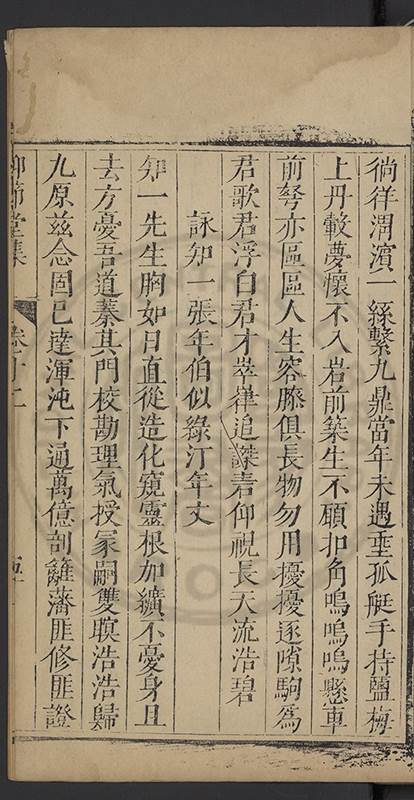 徜徉渭濱一絲繫九鼎當年未遇垂孤艇手持鹽梅
上丹轂夢懷不入岩前築生不願扣角嗚嗚嗚懸車
前弩亦區區人生容膝俱長物勿用擾擾逐隙駒為
君歌君浮白君才崒嵂追謀若仰視長天流浩碧
詠知一張年伯似綠汀年丈
知一先生胸如日直從造化窺靈根加纊不憂身且
去方憂吾道蓁其門校勘理氣授冢嗣雙瞑浩浩歸
九原茲念固已達渾沌下通萬億剖籬藩匪修匪證
仰節堂集
卷十二